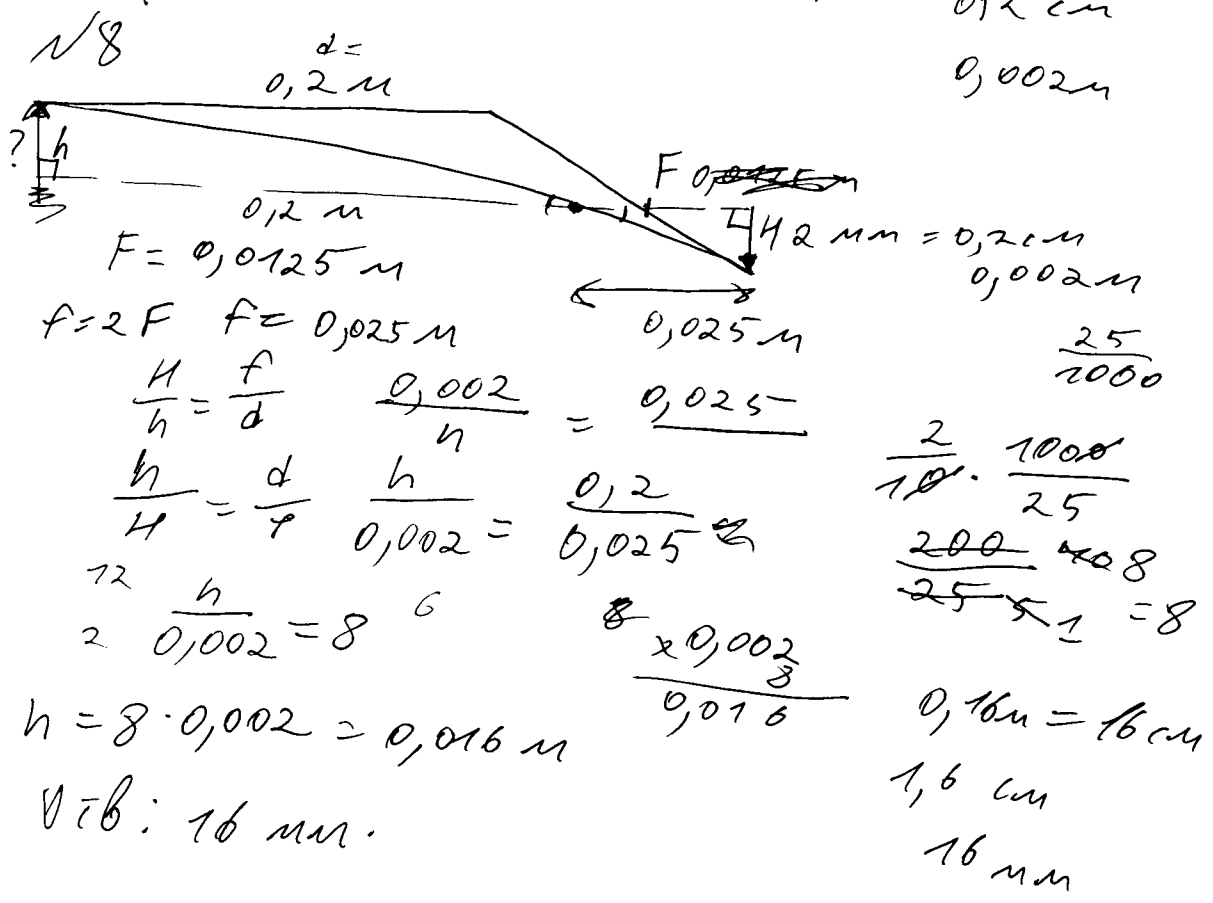 0,2 см
N8
d=
0,2 м
0,002 м
? h
F
0,2 м
H 2 мм = 0,2 см
0,002 м
F = 0,0125 м
f=2F f = 0,025 м
0,025 м
25/1000
H/h = f/d 0,002/h = 0,025/
2/10 · 1000/25
h/H = d/f h/0,002 = 0,2/0,025
200/25 40 8 5 1 = 8
12
2 h/0,002 = 8 6
8
x 0,002
8
0,016
h = 8 · 0,002 = 0,016 м
0,16м = 16 см
1,6 см
Отв: 16 мм.
16 мм